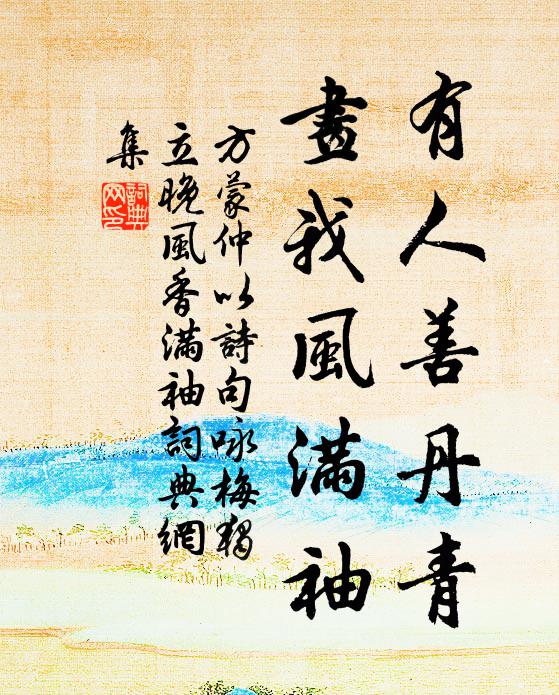 有人善丹青
畫我風滿袖
方蒙仲以詩句咏梅獨
立晚風香滿袖詞典網
集
詞典
网印